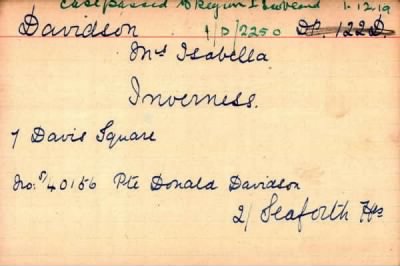 Case passed to Region I Scotland 1.12.19
Davidson 1/D/2250 DP. 122D.
Mrs Isabella
Inverness.
7 Davis Square
No: S/40156 Pte Donald Davidson
2/ Seaforth Hrs